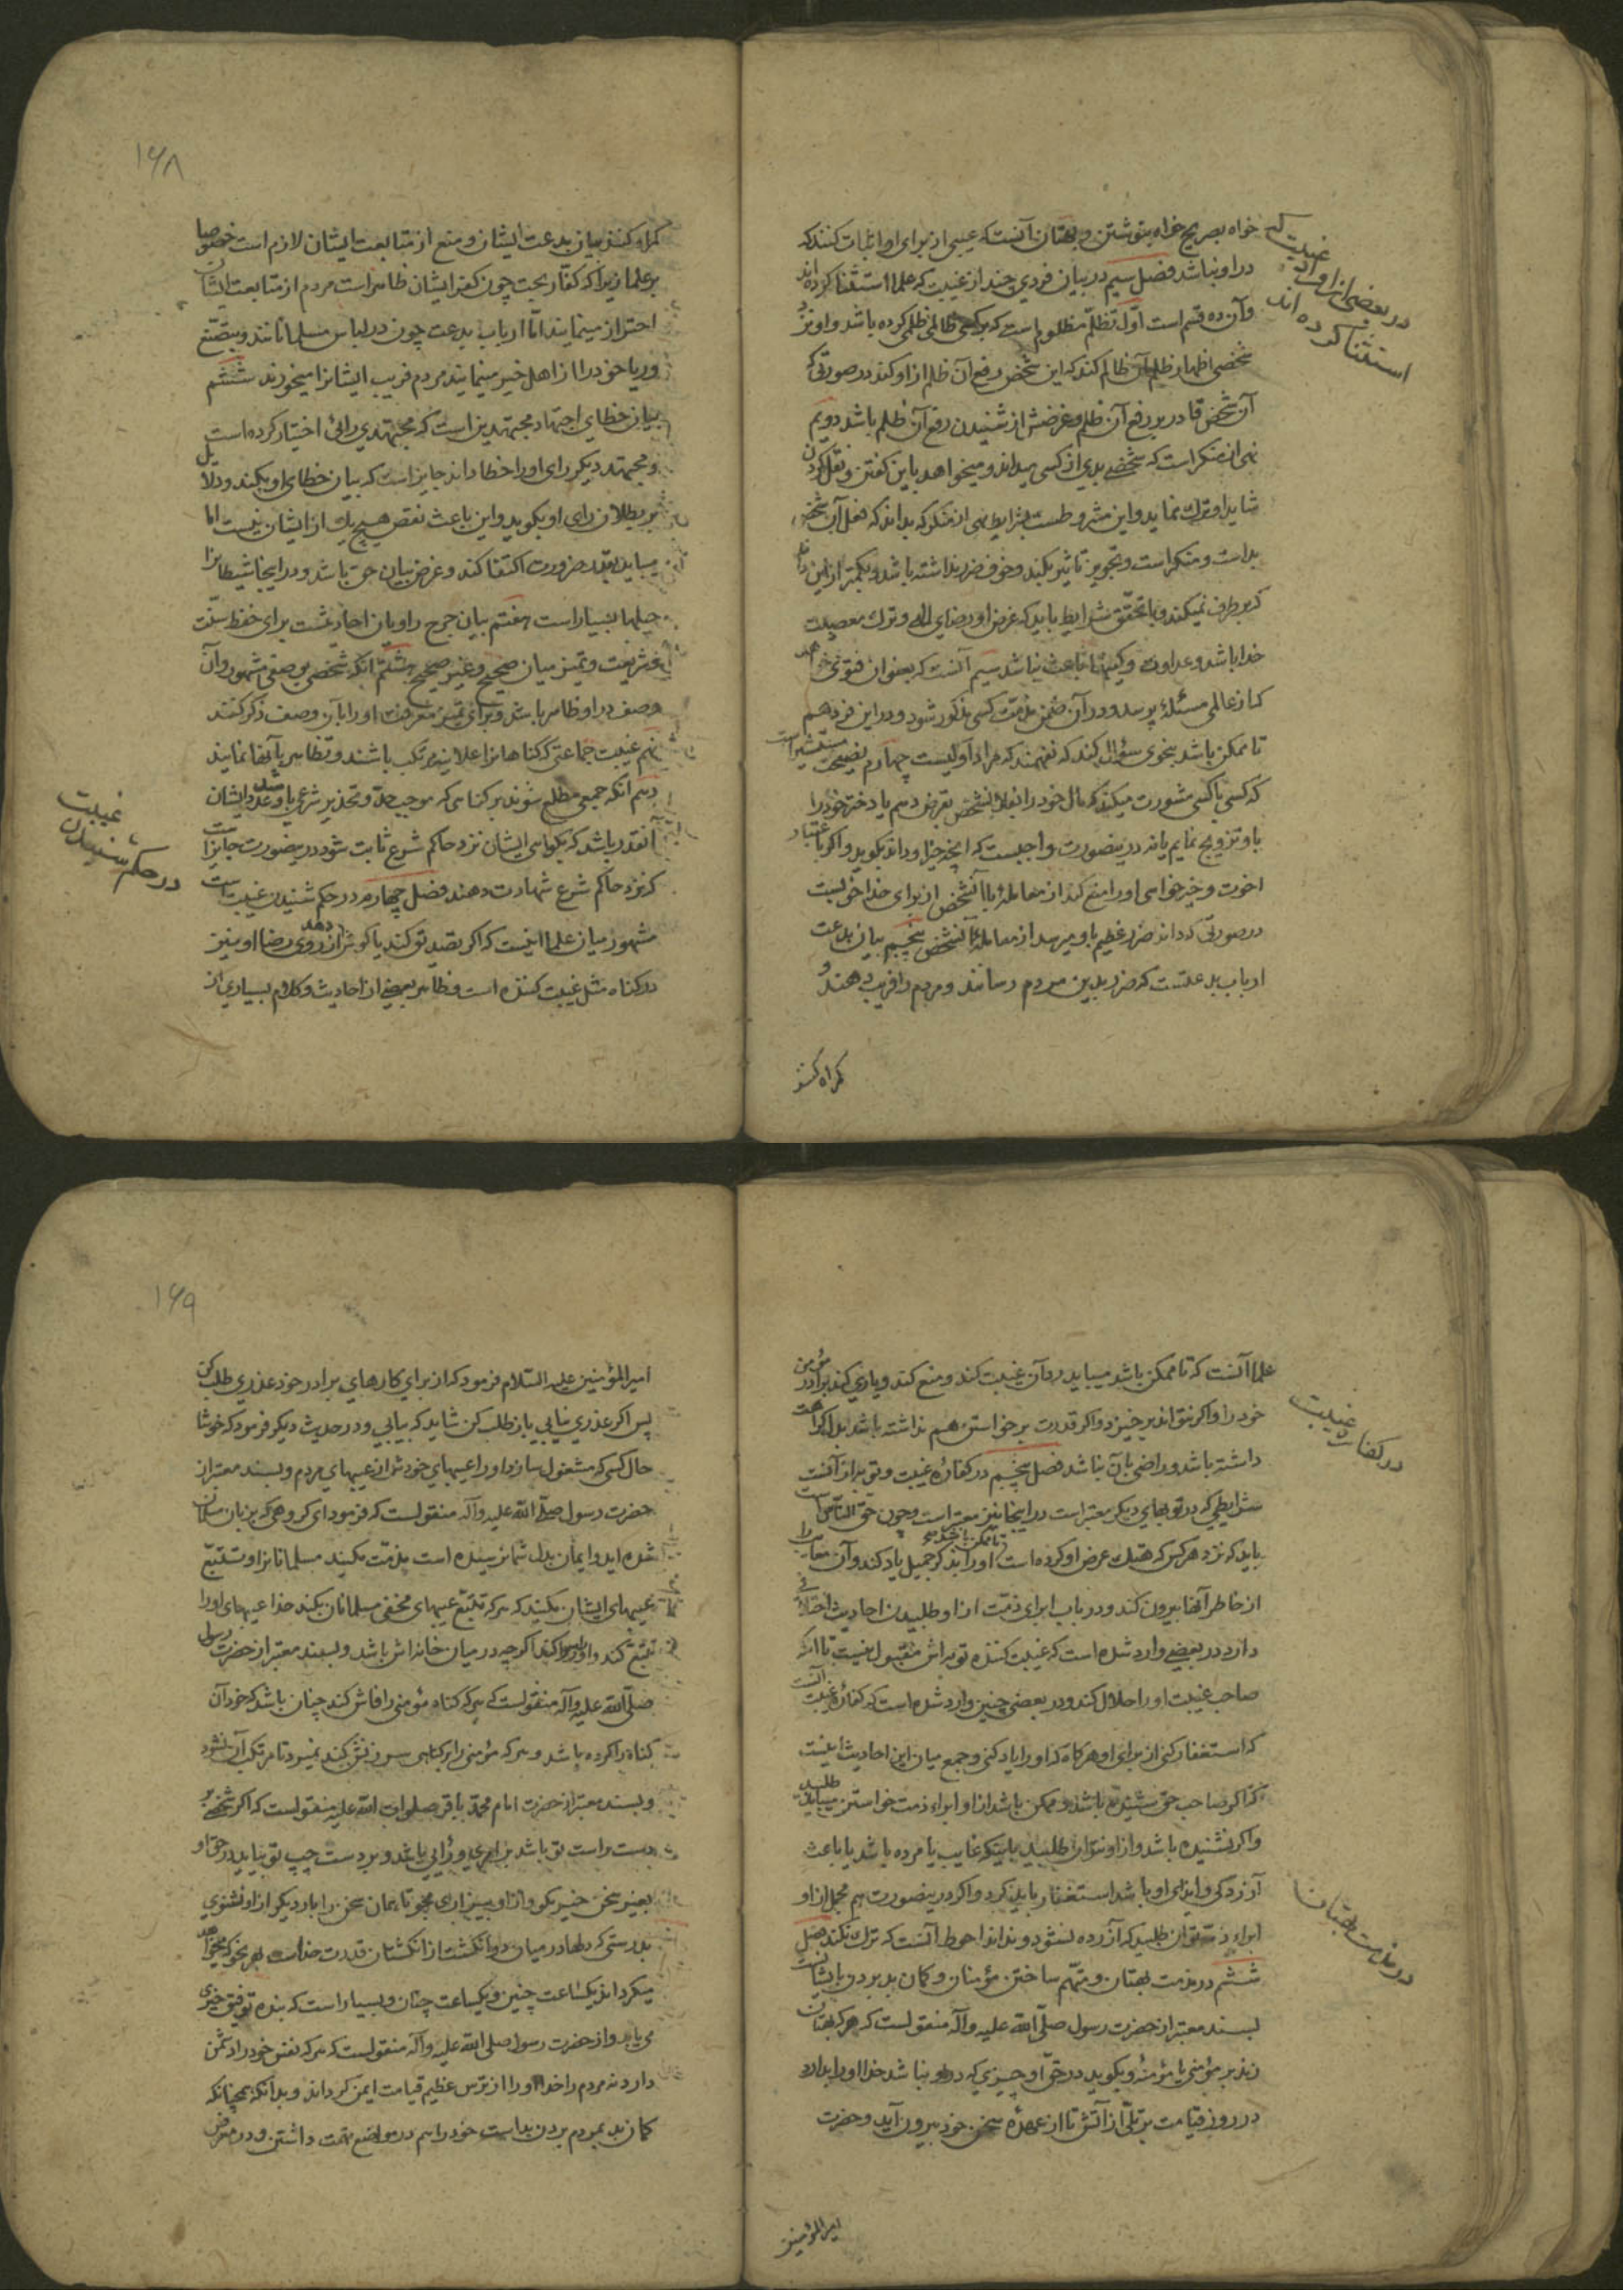 خواه بصریح خواه بنوشتن و بهتان آنست که عیبی از برای او اثبات کنند که
در او نباشد فصل سیم در بیان فردی چند از غیبت که علما استثنا کرده اند
و آن ده قسم است اوّل تظلّم مظلوم است که بر کسی ظالمی ظلمی کرده باشد و او نزد
شخصی اظهار ظلم آن ظالم کند که این شخص رفع آن ظلم از او کند در صورتی که
آن شخص قادر بر رفع آن ظلم و غرضش از شنیدن رفع آن ظلم باشد دویم
نهی از منکر است که شخصی بدی از کسی میداند و میخواهد باین گفتن و نقل کردن
شاید او ترك نماید و این مشروطست بشرایط نهی از منکر که بداند که فعل آن شخص
بد است و منکر است و تجویز تاثیر بکند و خوف ضرر نداشته باشد و بکمتر از این
که بر طرف نمیکند و با تحقّق شرایط باید که غرض او رضای الهی و ترك معصیت
خدا باشد و عداوت و کینها باعث نباشد سیم آنست که بعنوان فتوی خواهد
که از عالمی مسئلۀ پرسد و در آن ضمن مذمّت کسی مذکور شود و در این فرد هم
تا ممکن باشد بنحوی سؤال کند که نفهمند که مراد او کیست چهارم نصیحت مستشیر است
که کسی با کسی مشورت میکند که مال خود را بفلان شخص بقرض دهم یا دختر خود را
باو تزویج نمایم یا نه در ینصورت واجبست که آنچه خیر او داند بگوید و اگر باعتبار
اخوت و خیر خواهی او را منع کند از معاملۀ با آنشخص از برای خدا خوبست
در صورتی که داند ضرر عظیم باو میرسد از معاملۀ آنشخص پنجم بیان بدعت
ارباب بدعتست که ضرر بدین مردم رسانند و مردم را فریب دهند و
گمراه کنند
در بعضی از افراد غیبت که
استثنا کرده اند
۱۶۸
گمراه کنند بیان بدعت ایشان و منع از متابعت ایشان لازم است خصوصا
بر علما زیرا که کفّار بحت چون کفر ایشان ظاهر است مردم از متابعت ایشان
احتراز مینمایند امّا ارباب بدعت چون در لباس مسلمانانند و بتصنّع
و ریا خود را از اهل خیر مینمایند مردم فریب ایشانرا میخورند ششم
بیان خطای اجتهاد مجتهدین است که مجتهدی رائی اختیار کرده است
و مجتهد دیگر رای او را خطا داند جایز است که بیان خطای او بکند و دلایل
بر بطلان رای او بگوید و این باعث نقص هیچ یك از ایشان نیست اما
میباید بقدر ضرورت اکتفا کند و غرض بیان حق باشد و در اینجا شیطانرا
حیلها بسیار است هفتم بیان جرح راویان احادیثست برای حفظ سنّت
و شریعت و تمیز میان صحیح و غیر صحیح هشتم آنکه شخصی بوصفی مشهور و آن
وصف در او ظاهر باشد و برای تمیز معرفت او را بآن وصف ذکر کنند
نهم غیبت جماعتی که گناهانرا علانیه مرتکب باشند و تظاهر بآنها نمایند
دهم آنکه جمعی مطلع شوند بر گناهی که موجب حدّ و تعذیر شرعی باشد و عدد ایشان
آنقدر باشد که بگواهی ایشان نزد حاکم شرع ثابت شود در ینصورت جایز است
که نزد حاکم شرع شهادت دهند فصل چهارم در حکم شنیدن غیبت است
مشهور میان علما اینست که اگر تصدیق کند یا گوش دهد از روی رضا او نیز
در گناه مثل غیبت کننده است و ظاهر بعضی از احادیث و کلام بسیاری از
در حکم شنیدن
غیبت
علما آنست که تا ممکن باشد میباید رد آن غیبت کند و منع کند و یاری کند برادر مؤمن
خود را و اگر نتواند برخیزد و اگر قدرت برخواستن هم نداشته باشد بدل کراهت
داشته باشد و راضی بآن نباشد فصل پنجم در کفارۀ غیبت و توبه از آنست
شرایطی که در توبهای دیگر معتبر است در اینجا نیز معتبر است و چون حق الناس است
باید که نزد هر کس که هتك عرض او کرده است تا ممکن باشد او را بذکر جمیل یاد کند و آن معایب را
از خاطر آنها بیرون کند و در باب ابرای ذمّت از او طلبیدن احادیث اختلافی
دارد در بعضی وارد شده است که غیبت کننده توبه اش مقبول نیست تا آنکه
صاحب غیبت او را حلال کند و در بعضی چنین وارد شده است که کفارۀ غیبت آنست
که استغفار کنی از برای او هر گاه که او را یاد کنی و جمع میان این احادیث اینست
که اگر صاحب حق شنیده باشد و ممکن باشد از او ابراء ذمت خواستن میباید طلبید
و اگر نشنیده باشد و از او نتوان طلبید باینکه غایب یا مرده باشد یا باعث
آزردگی و ایذای او باشد استغفار باید کرد و اگر در ینصورت هم مجمل از او
ابراء ذمّت توان طلبید که آزرده نشود و نداند احوط آنست که ترك نکند فصل
ششم در مذمت بهتان و متّهم ساختن مؤمنان و گمان بد بردن بایشانست
بسند معتبر از حضرت رسول صلّی الله علیه وآله منقولست که هر که بهتان
زند بر مؤمنی یا مؤمنۀ و بگوید در حقّ او چیزی که در او نباشد خدا او را بدارد
در روز قیامت بر تلّی از آتش تا از عهدۀ سخن خود بیرون آید و حضرت
امیرالمؤمنین
در کفارت غیبت
در مذمت بهتان
۱۶۹
امیر المؤمنین علیه السّلام فرمود که از برای کارهای برادر خود عذری طلب کن
پس اگر عذری نیابی باز طلب کن شاید که بیابی و در حدیث دیگر فرمود که خوشا
حال کسی که مشغول سازد او را عیبهای خودش از عیبهای مردم و بسند معتبر از
حضرت رسول صلّی الله علیه وآله منقولست که فرمود ای گروهی که بزبان مسلمان
شده اید و ایمان بدل شما نرسیده است مذمّت مکنید مسلمانانرا و تتبّع
عیبهای ایشان مکنید که هر که تتبّع عیبهای مخفی مسلمانان بکند خدا عیبهای او را
تتبّع کند و او را رسوا کند اگر چه در میان خانه اش باشد و بسند معتبر از حضرت رسول
صلّی الله علیه وآله منقولست که هر که گناه مؤمنی را فاش کند چنان باشد که خود آن
گناه را کرده باشد و هر که مؤمنی را بر گناهی سرزنش کند نمیرد تا مرتکب آن نشود
و بسند معتبر از حضرت امام محمّد باقر صلوات الله علیه منقولست که اگر شخصی بر
دست راست تو باشد بر امری و رایی باشد و بر دست چپ تو بیاید در حق او
بغیر سخن خیر مگو و از او بیزاری مجو تا همان سخن را بار دیگر از او نشنوی
بدرستی که دلها در میان دو انگشت از انگشتان قدرت خداست بهر نحو که میخواهد
میگرداند یکساعت چنین و یکساعت چنان و بسیار است که بنده توفیق خیری
می یابد و از حضرت رسول صلی الله علیه وآله منقولست که هر که نفس خود را دشمن
دارد نه مردم را خدا او را از ترس عظیم قیامت ایمن گرداند و بدانکه همچنانکه
گمان بد بمردم بردن بد است خود را هم در مواضع تهمت داشتن و در معرض